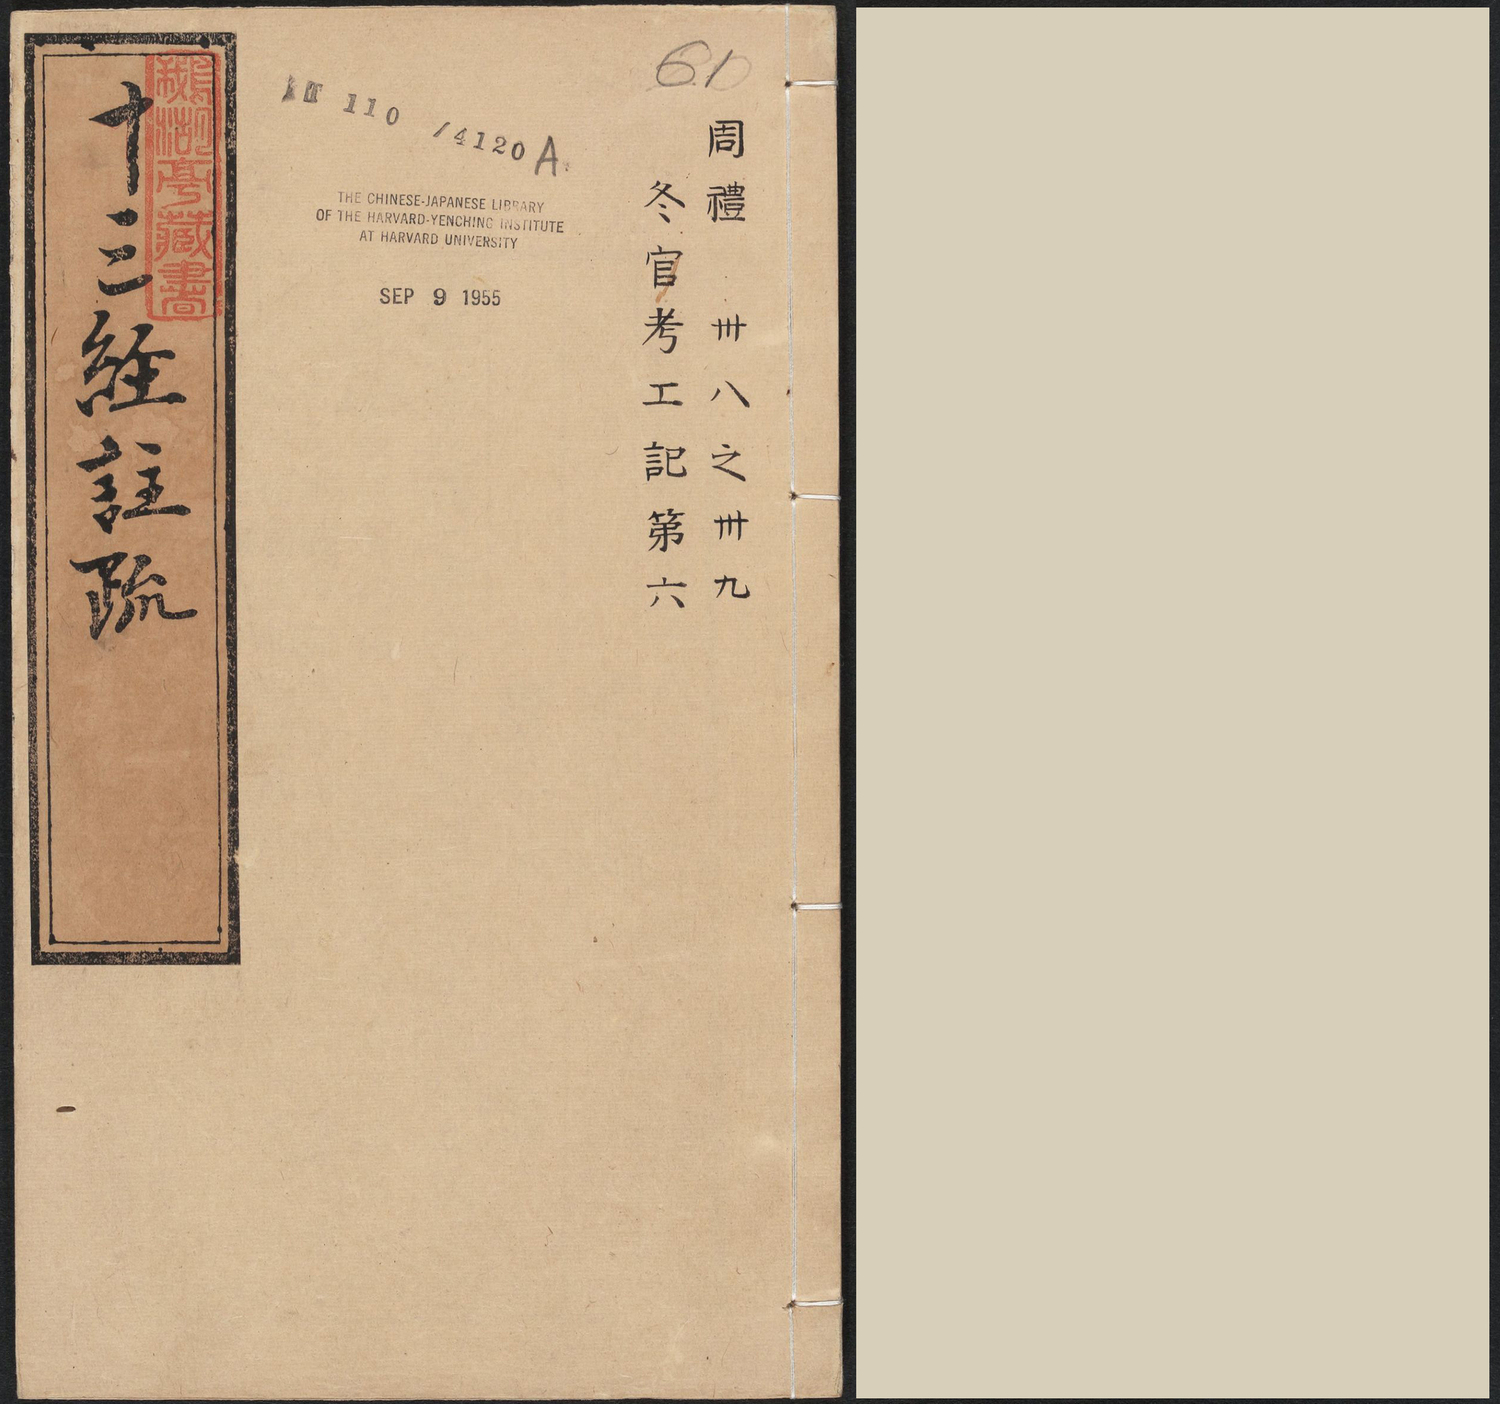 周禮 卅八之卅九
冬官考工記第六
T 110 /4120 A
THE CHINESE-JAPANESE LIBRARY
OF THE HARVARD-YENCHING INSTITUTE
AT HARVARD UNIVERSITY
SEP 9 1955
十三經註疏
鵝湖亭藏書